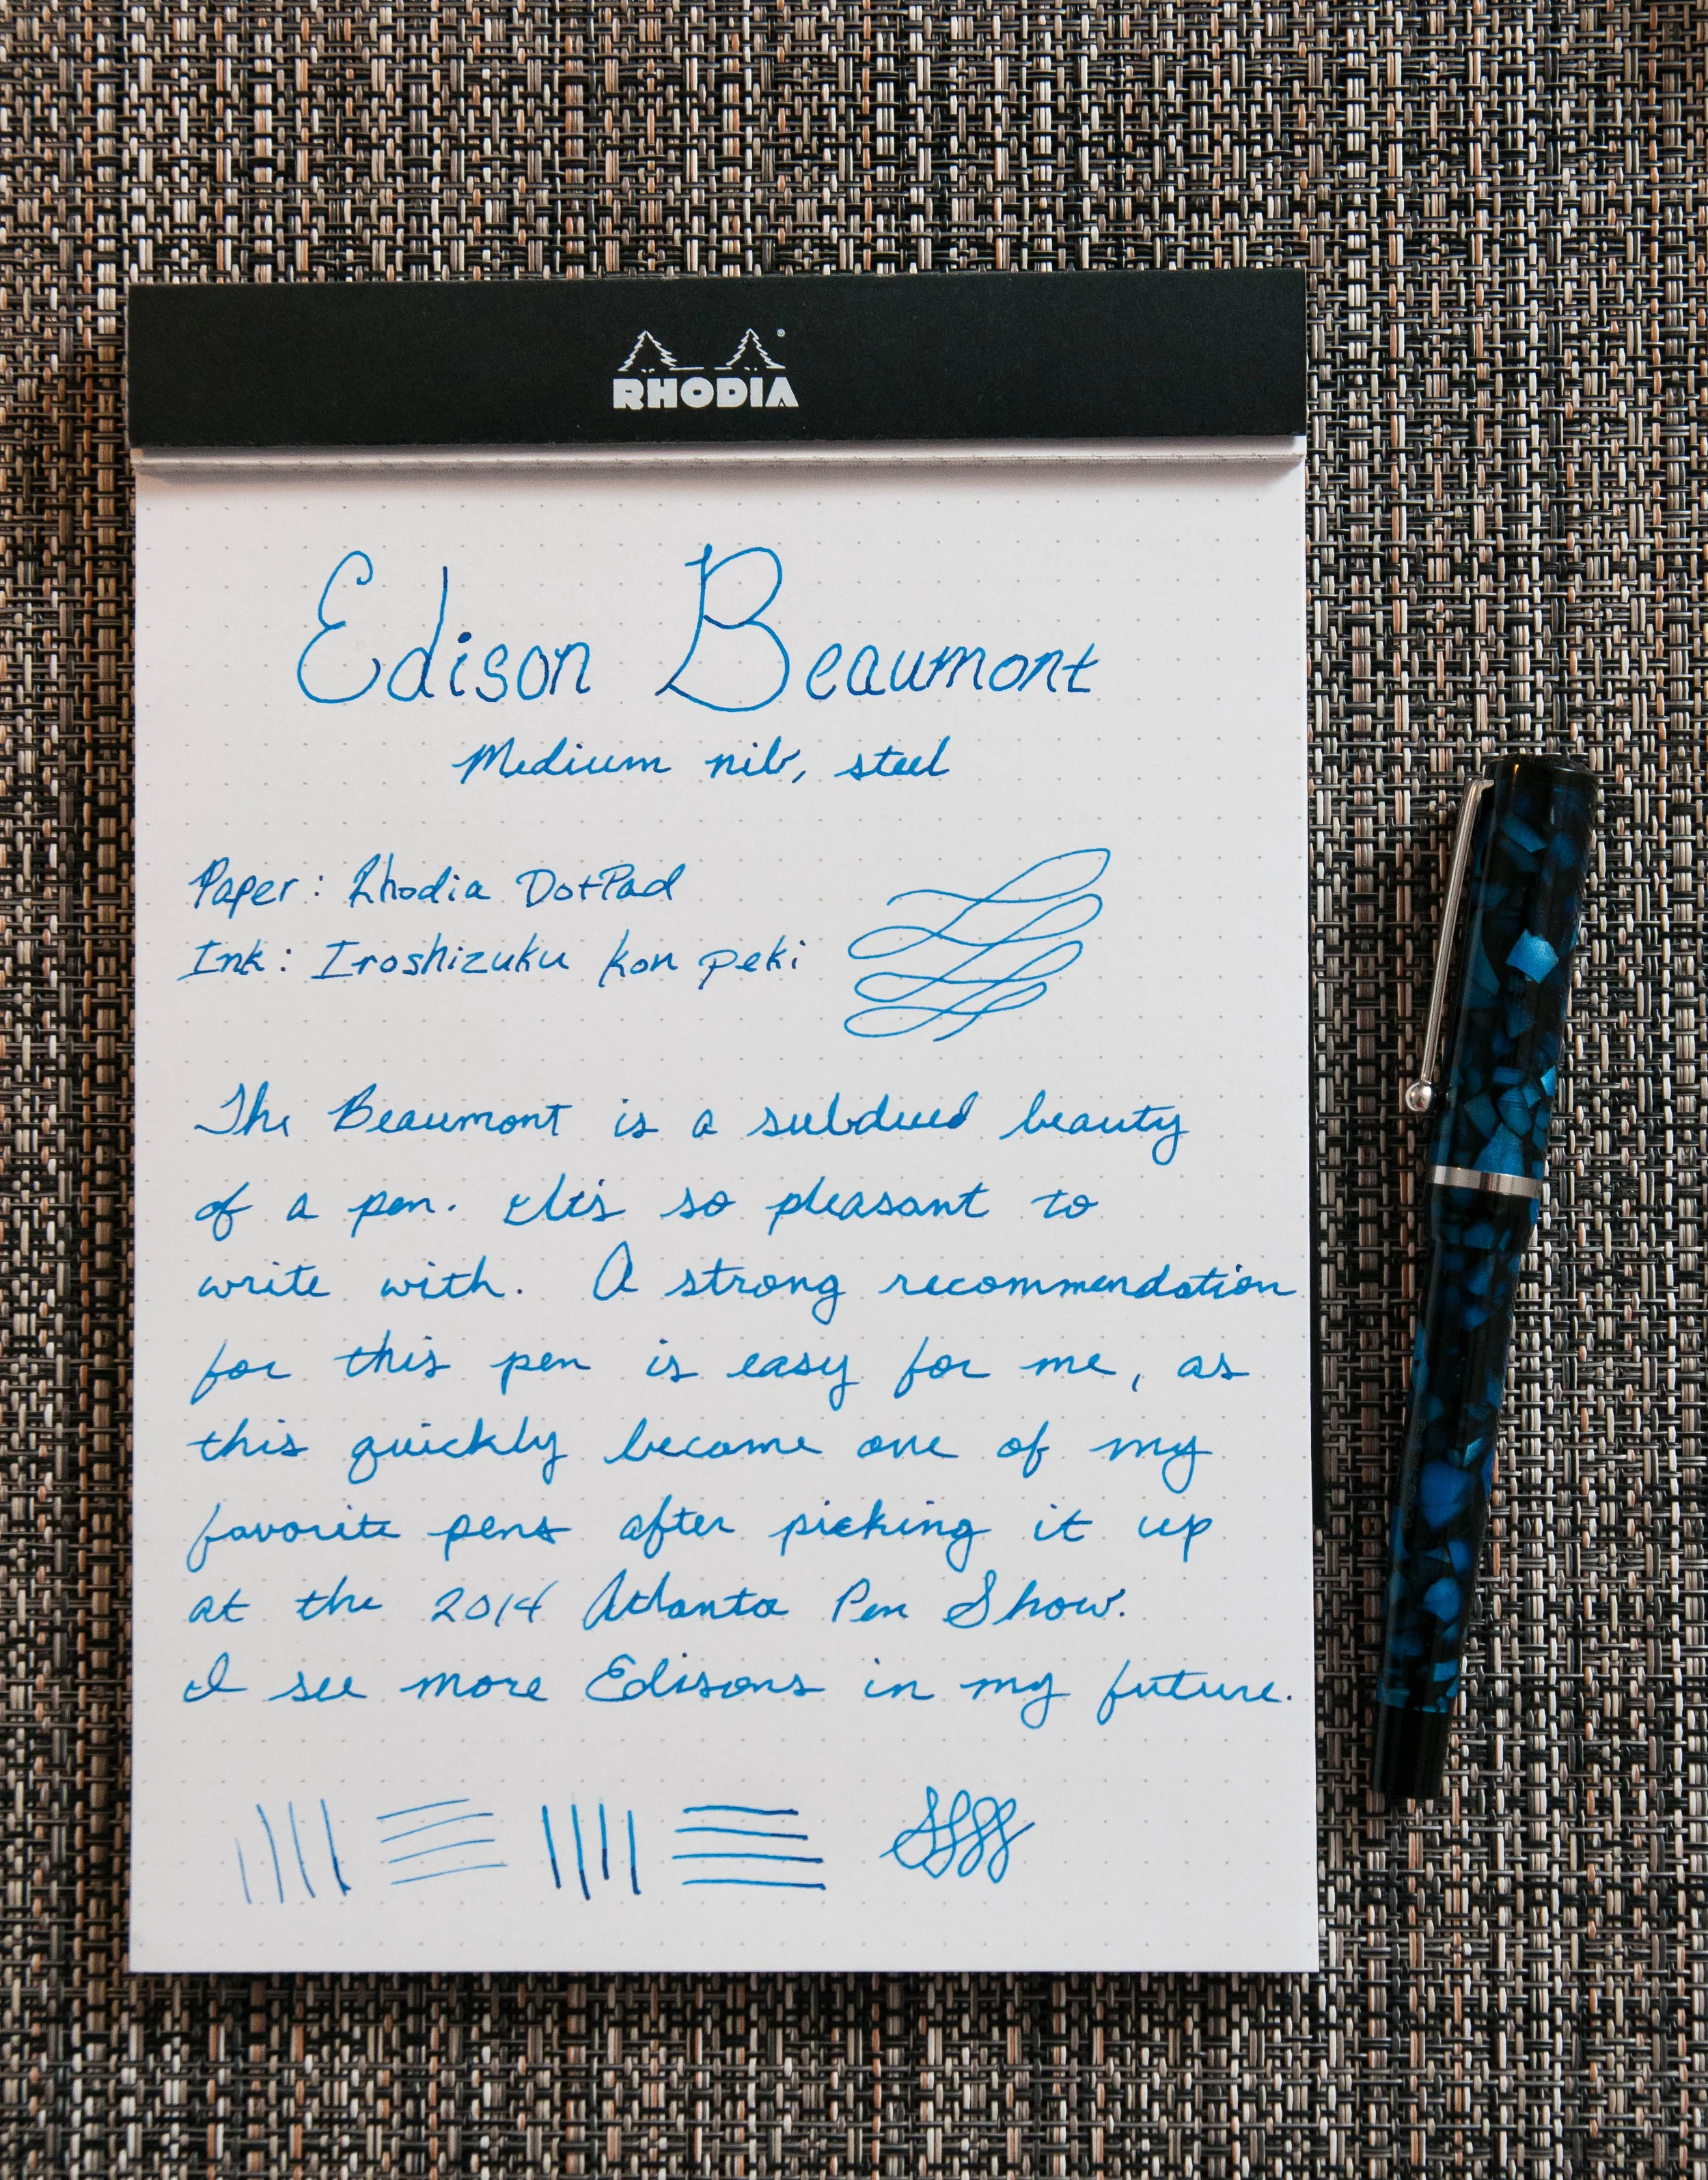 RHODIA
Edison Beaumont
Medium nib, steel
Paper: Rhodia DotPad
Ink: Iroshizuku kon peki
The Beaumont is a subdued beauty
of a pen. It's so pleasant to
write with. A strong recommendation
for this pen is easy for me, as
this quickly became one of my
favorite pens after picking it up
at the 2014 Atlanta Pen Show.
I see more Edisons in my future.